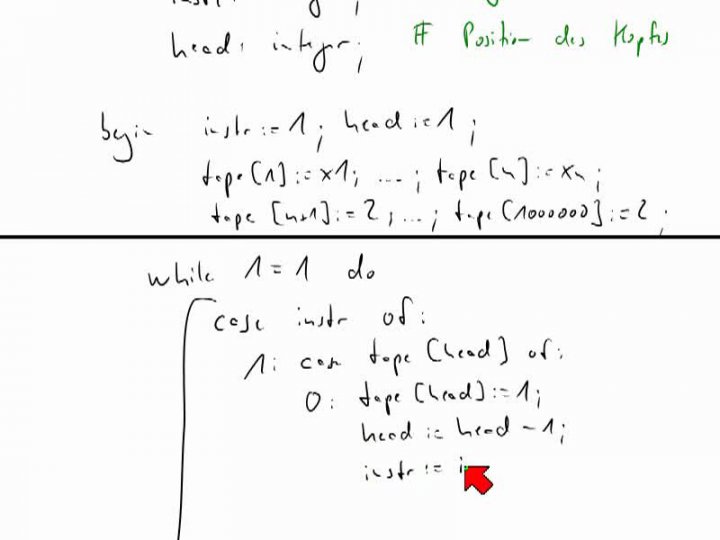 head: integer; # Position des Kopfes
begin instr := 1; head := 1;
tape[1] := x1; ...; tape[n] := xn;
tape[n+1] := 2; ...; tape[1000000] := 2;
while 1 = 1 do
case instr of:
1: case tape[head] of:
0: tape[head] := 1;
head := head - 1;
instr := i